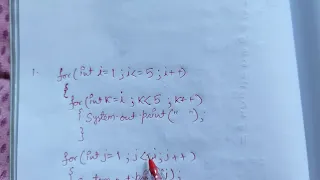 1.
for(int i=1; i<=5; i++)
{
for(int k=i; k<5; k++)
{ System.out.print(" ");
}
for(int j=1; j<=i; j++)
{ System.out.print(